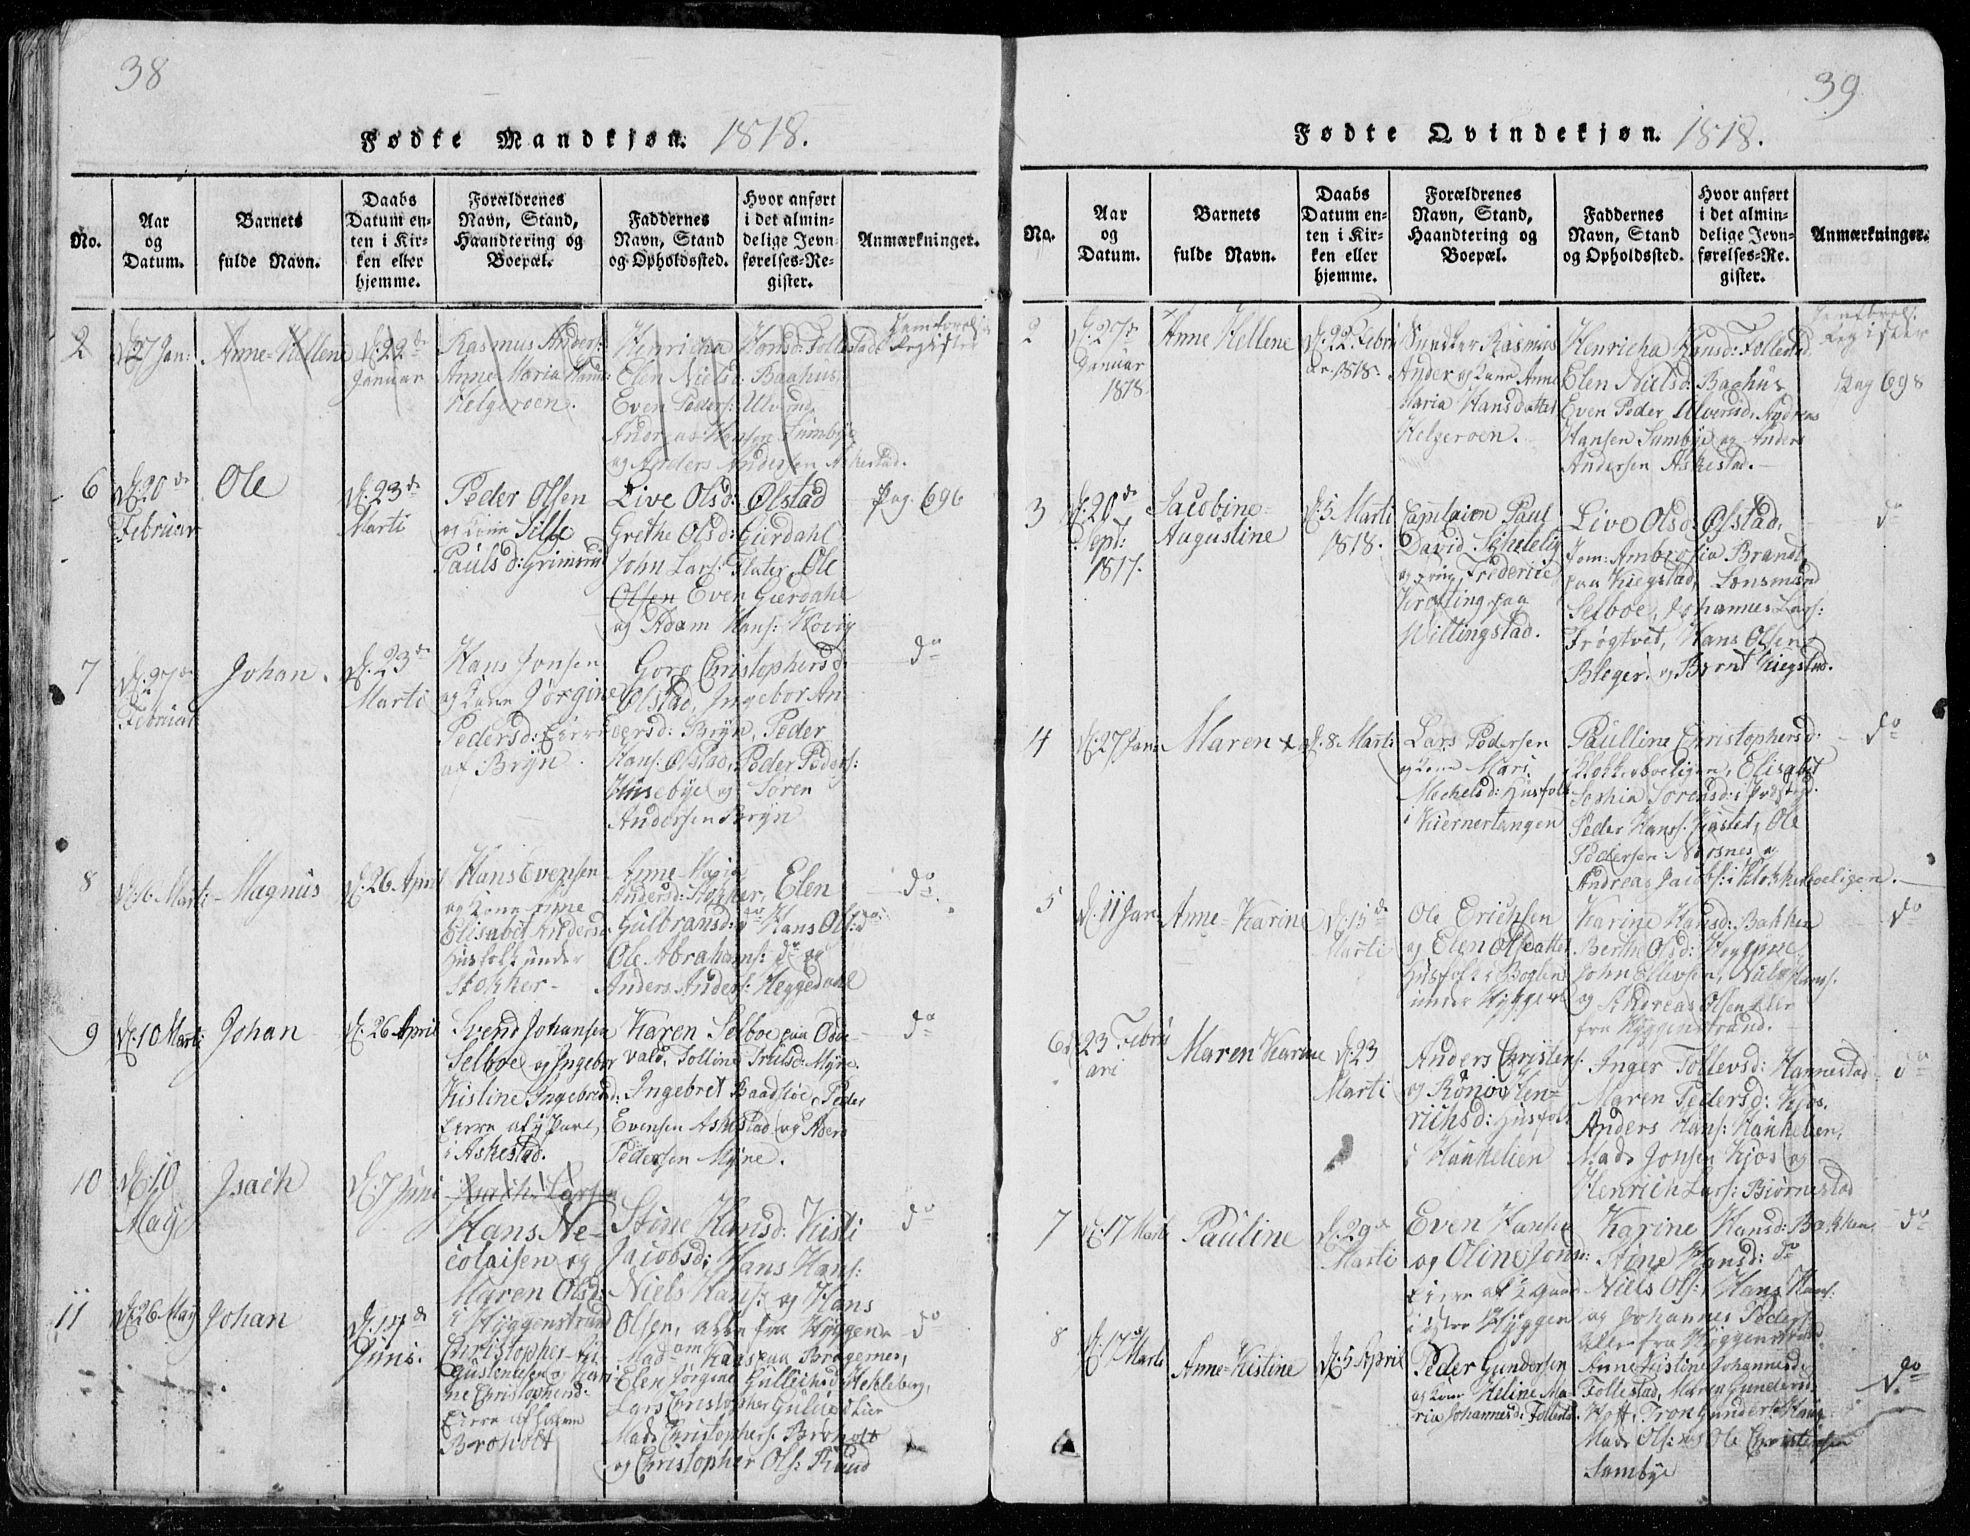 38
Fødte Mandkjøn. 1818.
No.
Aar
og
Datum.
Barnets
fulde Navn.
Daabs
Datum en-
ten i Kir-
ken eller
hjemme.
Forældrenes
Navn, Stand,
Haandtering og
Boepæl.
Faddernes
Navn, Stand
og Opholdssted.
Hvor anført
i det almin-
delige Jevn-
førelses-Re-
gister.
Anmærkninger.
2
27 Jan:
Anne-Hellene
22de
Januar
Rasmus Anders:
Anne Maria Hansd:
Helgeroen.
Henricha Hansd: Follestad
Elen Nielsd: Baahus,
Even Peders:
og Anders Andersen Askestad.
6
20de
Februar
Ole
23de
Marti
Peder Olsen
og Kone Sille
Paulsd: Grimsrud
Live Olsd: Ølstad
Grethe Olsd: Gierdahl
John Lars: Flater, Ole
Olsen Even Gierdahl
og Adam Hans: Hovig
Pag. 696
7
27de
Februar
Johan.
23de
Marti
Hans Jonsen
og Kone Jørgine
Pedersd: Eiere
af Bryn.
Goro Christophersd:
Ølstad, Ingebor An-
dersd: Bryn, Peder
Hans: Ølstad, Peder Peders:
Huseby og Søren
Andersen Bryn
do
8
16 Marti
Magnus
26 April
Hans Evensen
og Kone Anne
Elisabet Andersd:
Huusfolk under
Stokker
Anne Maria
Andersd: Stokker, Elen
Gulbransd: do Hans Ols: do
Ole Abrahams: do og
Anders Anders: Heggedahl
do
9
10 Marti
Johan
26 April
Svend Johansen
Selboe og Ingebor
Kistine Ingebretsd:
Eiere af
i Askestad.
Karen Selboe paa Odde-
vald, Tolline Trulsd: Myre.
Ingebret Baadstøe, Peder
Evensen Askestad og Abere
Pedersen Myre.
do
10
10
May
Isach
7 Juni
Isach Larsen
Hans Ne-
colaisen og
Maren Olsd:
i Hyggenstrand
Stine Hansd: Kisti
Jacobsd: Hans Hans:
Niels Hans: og Hans
Olsen, alle fra Hyggen
do
11
26 May
Johan
14de
Juni.
Christopher
Gulleichsen og Kari-
ne Christophersd:
Eiere af
Broholt
Madam Haas paa Bragernes,
Elen Jørgine Gulleichsd: Hekleberg,
Lars Christopher Lier
Mads Christophers: Broholt
og Christopher Ols: Ruud
do
39
Fødte Qvindekjøn. 1818.
No.
Aar
og
Datum.
Barnets
fulde Navn.
Daabs
Datum en-
ten i Kir-
ken eller
hjemme.
Forældrenes
Navn, Stand,
Haandtering og
Boepæl.
Faddernes
Navn, Stand
og Opholdssted.
Hvor anført
i det almin-
delige Jevn-
førelses-Re-
gister.
Anmærkninger.
2
27de
Januar
1818
Anne Hellene
22 Febru
ar 1818.
Rasmus
Anders: og Kone Anne
Maria Hansdatter
Helgeroen.
Henricha Hansd: Follestad
Elen Nielsd: Baahus
Even Peder Ulverud, Andreas
Hansen Sumbye og Anders
Andersen Askestad.
Register
Pag 698
3
20de
Sept:
1817.
Jacobine
Augustine
5 Marti
1818.
Captaien Paul
David Schelelig
og Frue Frederice
Krefting paa
Willingstad.
Live Olsd: Ølstad,
Jom: Ambrosia Brandt
paa Kiegstad, Lensmand
Selboe, Johannes Lars:
Frogtvet, Hans Olsen
Bleger og Bernt Kiegstad.
do
4
27 Jan:
Maren
8 Marti
Lars Pedersen
og Kone Mari
Mechelsd: Husfolk
i Kiernertangen
Paulline Christophersd:
Klokkerboeligen, Elisabet
Sophia Sørensd: i Præstegd:
Peder Hans: Kiøstel, Ole
Pedersen Nærsnes og
Andreas Jacobs: i Klokkerboeligen.
do
5
11 Jan:
Anne-Karine
15de
Marti
Ole Erichsen
og Elen Olsdatter
Husfolk i Bøglen
under Hyggen
Karine Hansd: Bakken
Berthe Olsd: Hyggene,
John Ellevsen, Niels Hans:
og Andreas Olsen alle
fra Hyggenstrand.
do
6
23 Febru
ari
Maren Karine
23
Marti
Anders Christens:
og Rønov Hen-
richsd: Husfolk
i Hankelien
Inger Tollevsd: Hannestad
Maren Pedersd: Kjos,
Anders Hans: Hankelien,
Mads Jonsen Kjos og
Henrich Lars: Biørnestad
do
7
17 Marti
Pauline
29de
Marti
Even Hansen
og Oline Jonsd:
Eiere af ½ Gaard
i østre Hyggen
Karine Hansd: Bakken
Stine Hansd: do
Niels Ols: Hans Hans:
og Johannes Peders:
alle fra Hyggenstrand
do
8
17 Marti
Anne-Kistine
5 April
Peder Gundersen
og Kone Heline Ma-
ria Johannesd: Follestad.
Anne Kistine Johannesd:
Follestad, Maren Gundersd:
Hoff, Tron Gunders: Haug
Mads Ols: og Ole Christensen
Sumbye
do